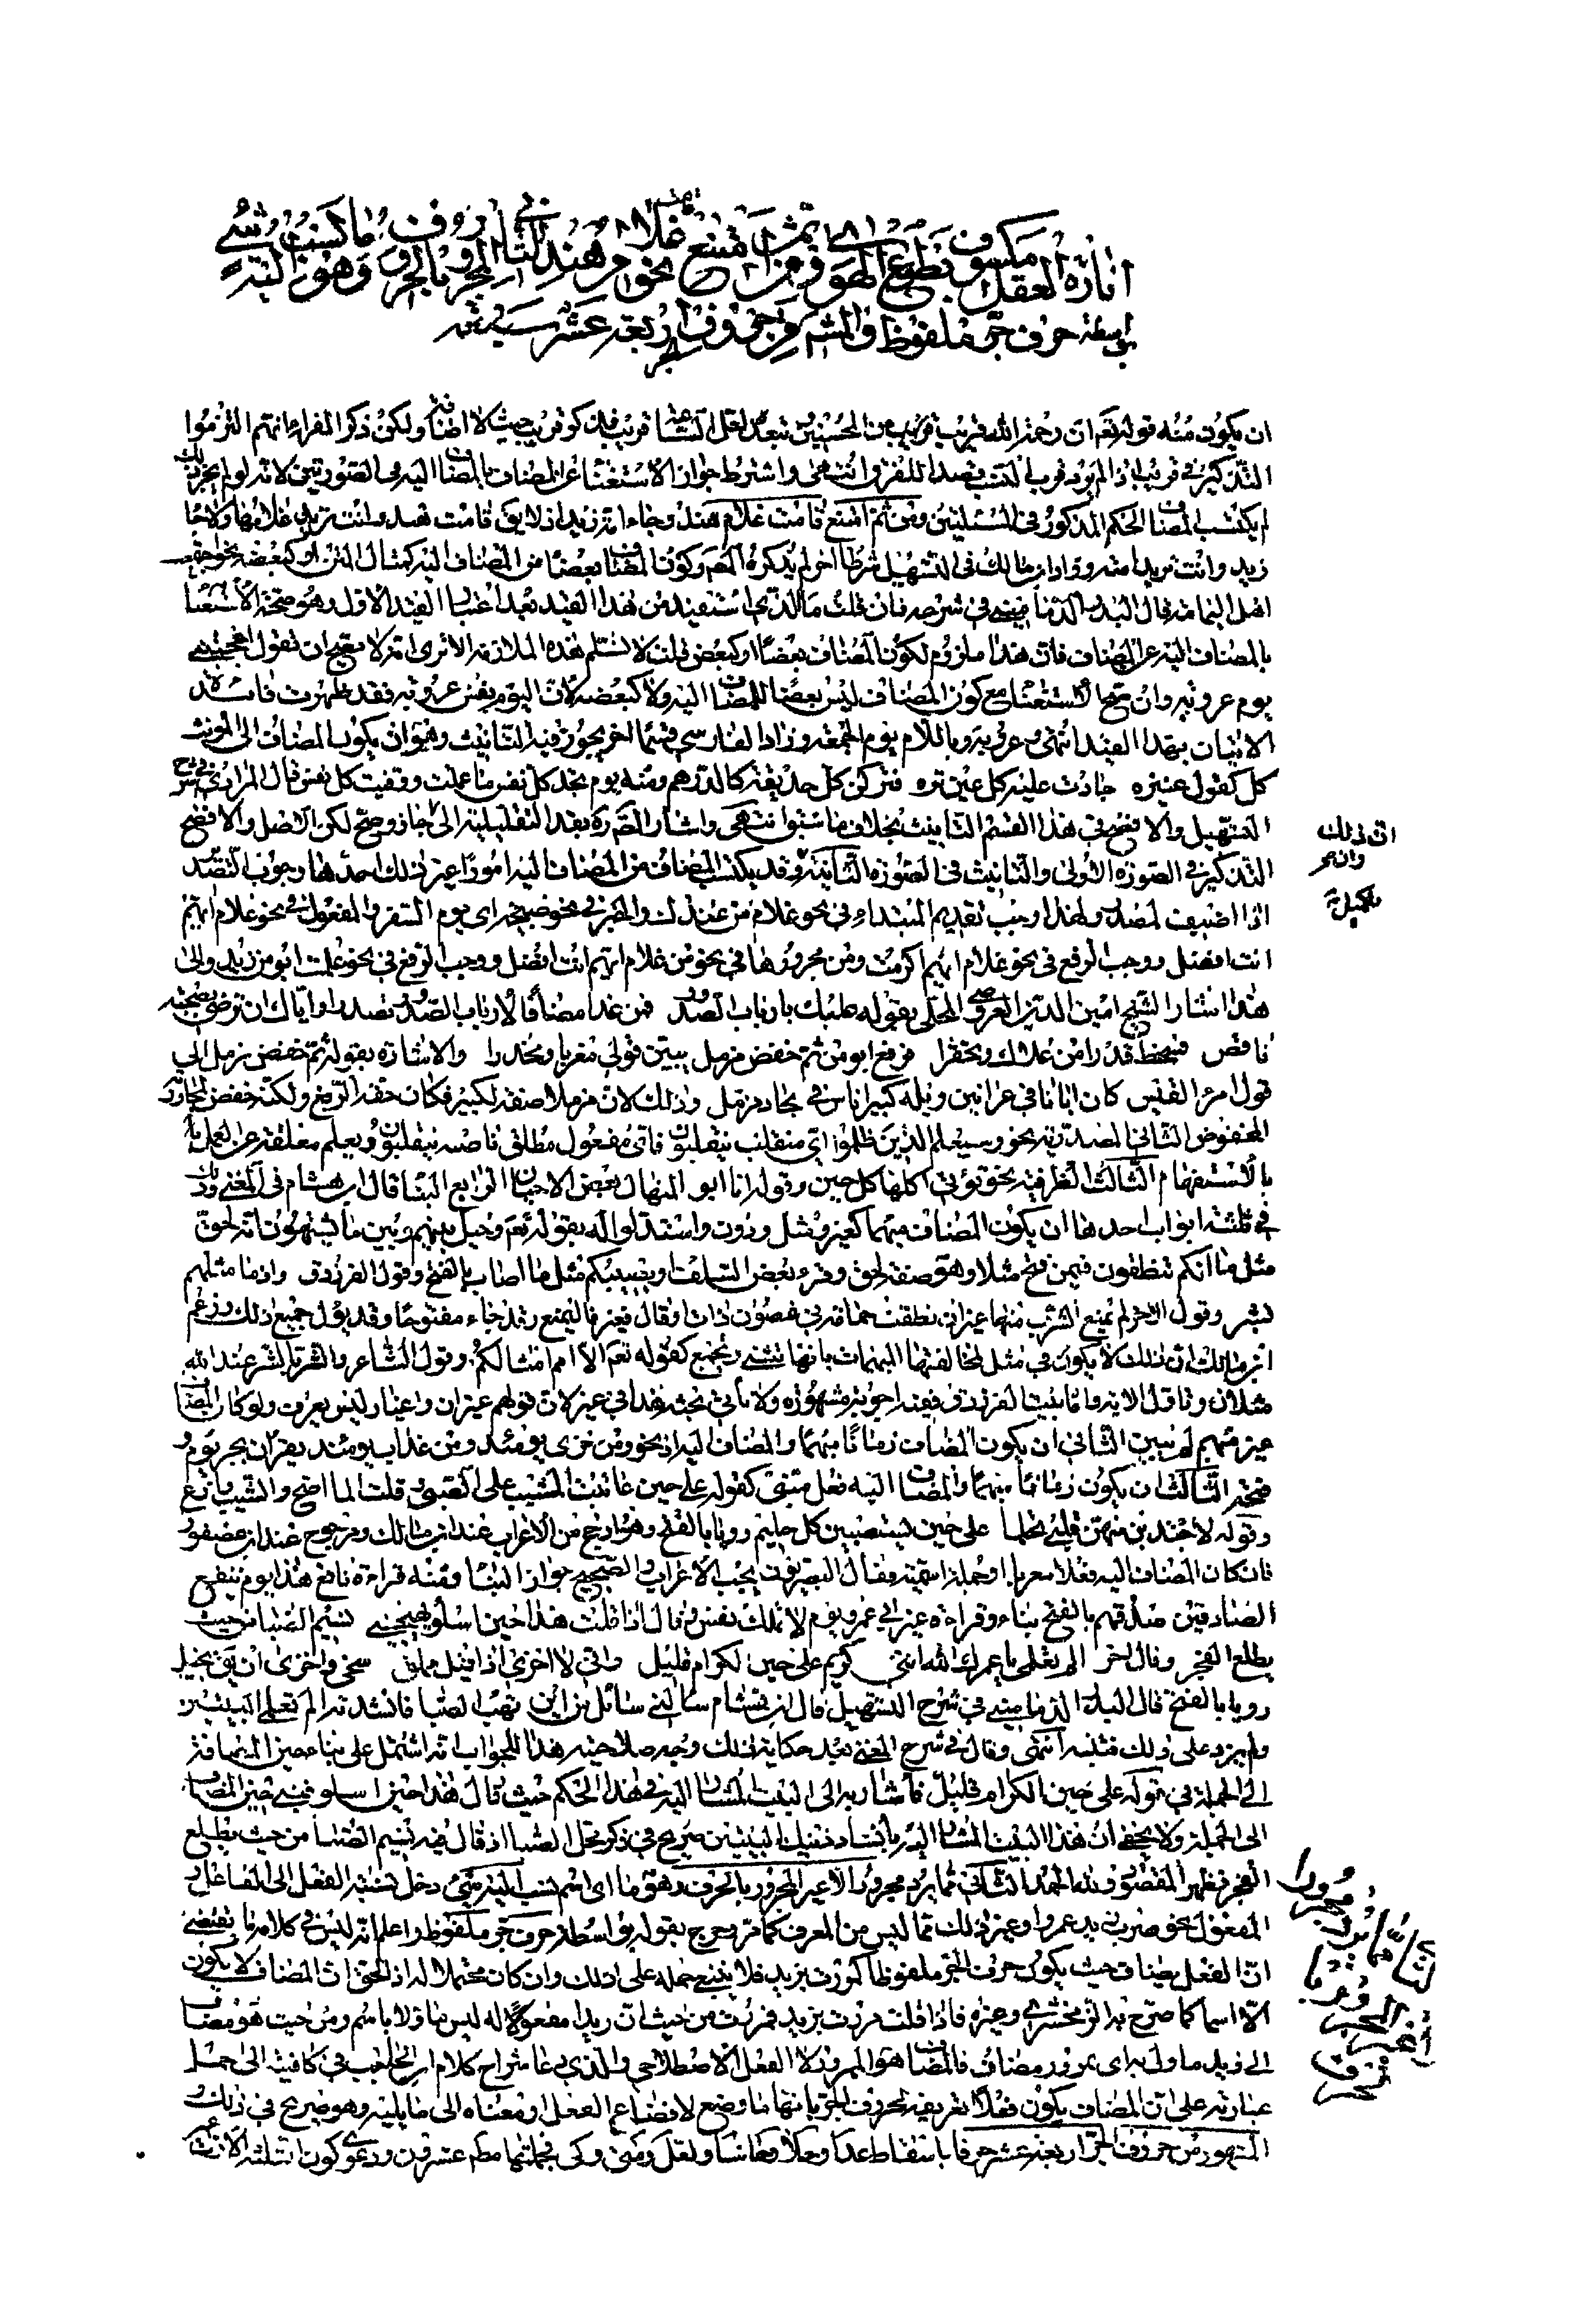 انارة العقل مكسوف بطوع الهوى ومن ثمت امتنع نحو قامت غلام هند الثاني المجرور بالحرف وهو ما نسب اليه شيء
بواسطة حرف جر ملفوظ والمشهور من حروف الجر اربعة عشر
ان يكون منه قوله تعم ان رحمة الله قريب من المحسنين لعل الساعة قريب ولكن ذكر الفراء انهم التزموا
التذكير في قريب اذا لم يرد قرب النسب قصدا للفرق انتهى واشترط جواز الاستغناء عن المضاف بالمضاف اليه في الصورتين لانه لو لم يجز ذلك
لم يكتسب المضاف الحكم المذكور في المسئلتين ومن ثم امتنع قامت غلام هند وجاء امة زيد اذ لا يق قامت هند وانت تريد غلامها ولا جاء
زيد وانت تريد امته وزاد ابن مالك في التسهيل شرطا آخر لم يذكره المص وكون المضاف بعضا من المضاف اليه كمثال المتن او كبعضه نحو اجتمعت
اهل اليمامة قال البدر الدماميني في شرحه فان قلت ما الذي استفيد من هذا القيد بعد اعتبار القيد الاول وهو صحة الاستغناء
بالمضاف اليه عن المضاف فان هذا ملزوم لكون المضاف بعضا او كبعض قلت لا نسلم هذه الملازمة الا ترى انه لا يصح ان تقول اعجبتني
يوم عروبة وان صح الاستغناء مع كون المضاف ليس بعضا للمضاف اليه ولا كبعضه لان اليوم نفس عروبة فقد ظهرت فائدة
الاتيان بهذا القيد انتهى وعروبة وباللام يوم الجمعة وزاد الفارسي قسما آخر يجوز فيه التانيث وهو ان يكون المضاف الى المؤنث
كل كقول عنتره جادت عليه كل عين ثره فتركن كل حديقة كالدرهم ومنه يوم تجد كل نفس ما عملت ووفيت كل نفس قال المرادي في شرح
التسهيل والافصح في هذا القسم التانيث بخلاف ما سبق انتهى واشار المص ره بقد التقليلية الى انه جاز وصح لكن الاصل والافصح
التذكير في الصورة الاولى والتانيث في الصورة الثانية وقد يكتسب المضاف من المضاف اليه امورا غير ذلك احدها وجوب التصدر
اذا اضيف لمصدر ولهذا وجب تقديم المبتداء في نحو غلام من عندك والخبر في نحو صبيحة اي يوم السفر والمفعول في نحو غلام ايهم
انت افضل ووجب الرفع في نحو غلام ايهم اكرمت ومن مجرورها في نحو من غلام ايهم انت افضل ووجب الرفع في نحو علمت ابو من زيد والى
هذا اشار الشيخ امين الدين العروضي المحلي بقوله عليك بارباب الصدور فمن غدا مضافا لارباب الصدور تصدرا واياك ان ترضى بصحبة
ناقص فتنحط قدرا من علاك وتحقرا فرفع ابو من ثم خفض مزمل يبين قولي مغريا ومحذرا والاشارة بقوله ثم خفض مزمل الى
قول امرء القيس كان ابانا في عرانين وبله كبير اناس في بجاد مزمل وذلك لان مزملا صفة لكبير فكان حقه الرفع ولكنه خفض لمجاورة
المخفوض الثاني المصدرية نحو وسيعلم الذين ظلموا اي منقلب ينقلبون فاي مفعول مطلق ناصبه ينقلبون ويعلم معلقة عن العمل
بالاستفهام الثالث الظرفية نحو تؤتي اكلها كل حين وقوله انا ابو المنهال بعض الاحيان الرابع البناء قال ابن هشام في المغني وذلك
في ثلثة ابواب احدها ان يكون المضاف مبهما كغير ومثل ودون واستدلوا له بقوله تعم وحيل بينهم وبين ما يشتهون انه لحق
مثل ما انكم تنطقون فيمن فتح مثلا وهو صفة لحق وقرء بعض السلف ان يصيبكم مثل ما اصاب بالفتح وقول الفرزدق واذ ما مثلهم
بشر وقول الاخر لم يمنع الشرب منها غير ان نطقت حمامة في غصون ذات اوقال فغير فاعل يمنع وقد جاء مفتوحا وقد يؤل جميع ذلك وزعم
ابن مالك ان ذلك لا يكون في مثل لمخالفتها المبهمات بانها تثنى وتجمع كقوله تعم الا امم امثالكم وقول الشاعر والشر بالشر عند الله
مثلان وتاول الاية واما بيت الفرزدق ففيه اجوبة مشهورة ولا يأتي بحثه هذا في غير لان قولهم غيران واغيار ليس بعربي ولو كان المضاف
غير مبهم لم يبن الثاني ان يكون المضاف زمانا مبهما والمضاف اليه اذ نحو ومن خزي يومئذ ومن عذاب يومئذ يقران بجر يوم
وفتحه الثالث ان يكون زمانا مبهما والمضاف اليه فعل مبني كقوله على حين عاتبت المشيب على الصبى وقلت الما اصح والشيب وازع
وقوله لاجتذبن منهن قلبي تحلما على حين يستصبين كل حليم رويا بالفتح وهو ارجح من الاعراب عند ابن مالك ومرجوح عند ابن عصفور
فان كان المضاف اليه فعلا معربا او جملة اسمية فقال البصريون يجب الاعراب والصحيح جواز البناء ومنه قراءة نافع هذا يوم ينفع
الصادقين صدقهم بالفتح بناء وقراءة غير ابي عمرو يوم لا تملك نفس وقال اذا قلت هذا حين اسلو يهيجني نسيم الصبا من حيث
يطلع الفجر وقال اخر الم تعلمي يا عمرك الله انني كريم على حين الكرام قليل واني لا اخزى اذا قيل مملق سخي واخزى ان يق بخيل
رويا بالفتح قال البدر الدماميني في شرح التسهيل قال ابن هشام سألني سائل من اين تهب الصبا فانشدته الم تعلمي البيتين
ولم يزد على ذلك فتنبه انتهى وقال في شرح المغني بعد حكاية ذلك وجه صلاحية هذا للجواب انه اشتمل على بناء حين المضافة
الى الجملة في قوله على حين الكرام قليل فاشار به الى البيت المشار اليه في هذا الحكم حيث قال هذا حين اسلو فبنى حين المضاف
الى الجملة ولا يخفى ان هذا البيت المشار اليه بانشاد ذينك البيتين صريح في ذكر محل الصبا اذ قال فيه نسيم الصبا من حيث يطلع
الفجر فظهر المقصود ولله الحمد الثاني مما يرد مجرورا لا غير المجرور بالحرف وهو ما اى اسم نسب اليه شيء دخل نسبة الفعل الى الفاعل و
المفعول نحو ضرب زيد عمروا وغير ذلك مما ليس من المعرف كما مر وخرج بقوله بواسطة حرف جر ملفوظ واعلم انه ليس في كلامه ما يقتضي
ان الفعل يضاف حيث يكون حرف الجر ملفوظا كمررت بزيد فلا ينبغي حمله على ذلك وان كان محتملا له اذ الحق ان المضاف لا يكون
الا اسما كما صرح به الزمخشري وغيره فاذا قلت مررت بزيد فمررت من حيث ان زيدا مفعولا له ليس مأولا باسم ومن حيث هو مضاف
الى زيد مأول به اى مرور مضاف فالمضاف هو المرور لا الفعل الاصطلاحي والذي دعا شراح كلام ابن الحاجب في كافيته الى حمل
عبارته على ان المضاف يكون فعلا تعريفه لحروف الجر بانها ما وضع لافضاء الفعل او معناه الى ما يليه وهو صريح في ذلك و
المشهور من حروف الجر اربعة عشر حرفا باسقاط عدا وخلا وحاشا ولعل ومتى وكي فجملتها مطم عشرون ودعوى كون الثلثة الاول
ان ذلك
وانه